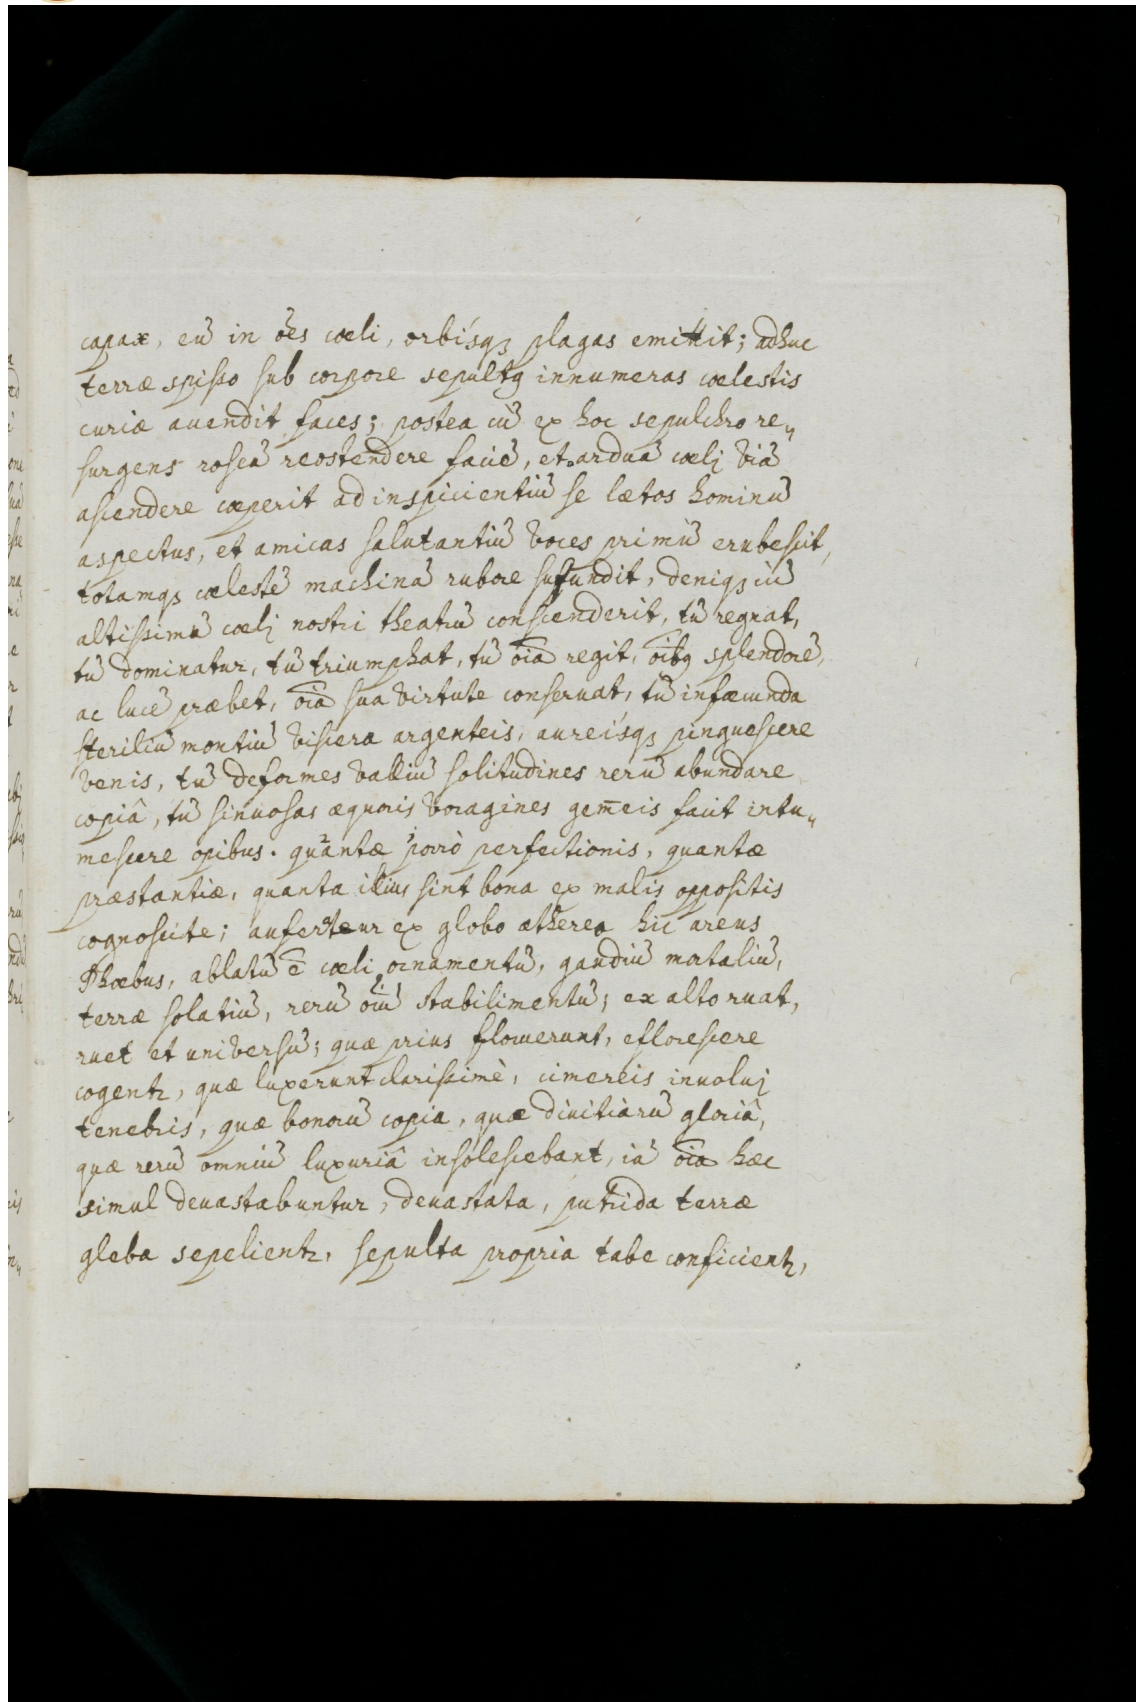 capax, eū in ōes cœli, orbisqꝫ plagas emittit; adhuc
terræ spisso sub corpore sepultꝰ innumeras cœlestis
curiæ accendit faces; postea cū ex hoc sepulchro re„
surgens roseā reostendere faciē, et arduā cœlj viā
ascendere cœperit ad inspicientiū se lætos hominū
aspectus, et amicas salutantiū voces primū erubescit,
totamqꝫ cœlestē machinā rubore suffundit, deniqꝫ cū
altissimū cœlj nostri theatrū conscenderit, tū regnat,
tū dominatur, tū triumphat, tū oīa regit, oībꝰ splendorē,
ac lucē præbet, oīa sua virtute conservat, tū infæcunda
steriliū montiū viscera argenteis, aureisqꝫ pinguescere
venis, tū deformes valliū solitudines rerū abundare
copiâ, tū sinuosas æquoris voragines gem̄eis facit intu„
mescere opibus. quantæ porrò perfectionis, quantæ
præstantiæ, quanta illius sint bona ex malis oppositis
cognoscite; auferteur ex globo æthereo hic areus
Phœbus, ablatū ē cœli ornamentū, gaudiū mortaliū,
terræ solatiū, rerū oīū stabilimentū; ex alto ruat,
ruet et universū; quæ prius floruerunt, eflorescere
cogentꝛ, quæ luxerunt clarissimè, cimereis involvj
tenebris, quæ bonorū copia, quæ divitiarū gloriâ,
quæ rerū omniū luxuriâ insolescebant, iā oīa hæc
simul devastabuntur, devastata, putrida terræ
gleba sepelientꝛ, sepulta propria tabe conficientꝛ,